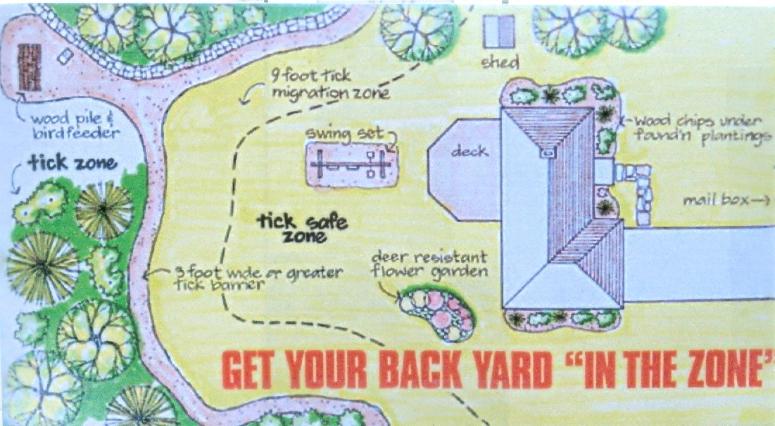 shed
9 foot tick
migration zone
wood pile &
birdfeeder
swing set
wood chips under
found'n plantings
tick zone
deck
mail box→
tick safe
zone
deer resistant
flower garden
3 foot wide or greater
tick barrier
GET YOUR BACK YARD "IN THE ZONE"